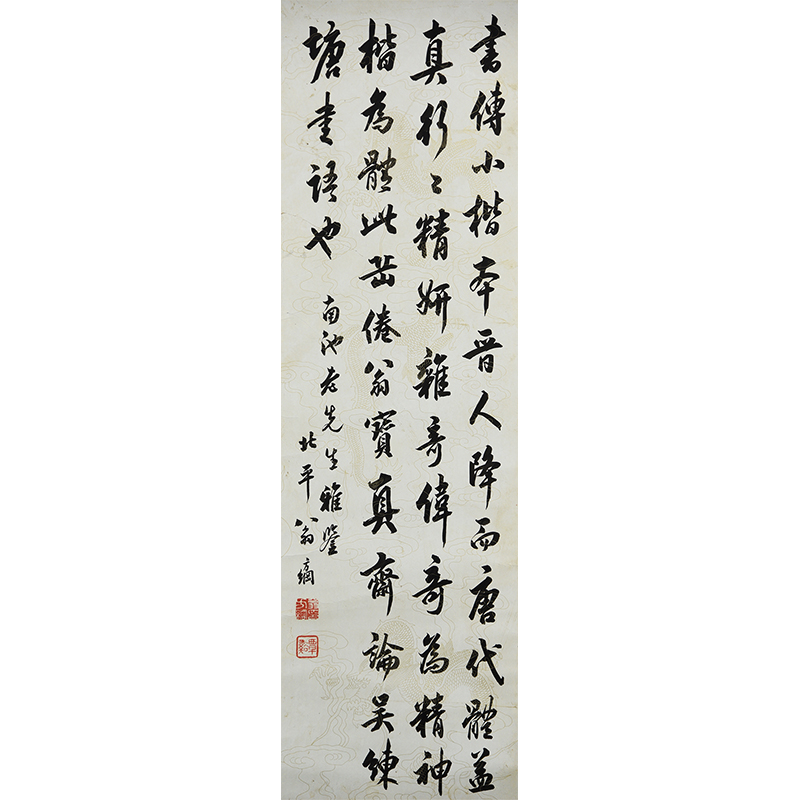 書傳小楷本晉人降而唐代體益
真行〻精妍雜奇偉奇為精神
楷為體此岳倦翁寶真齋論吴練
塘書語也
南池老先生雅鑒
北平翁